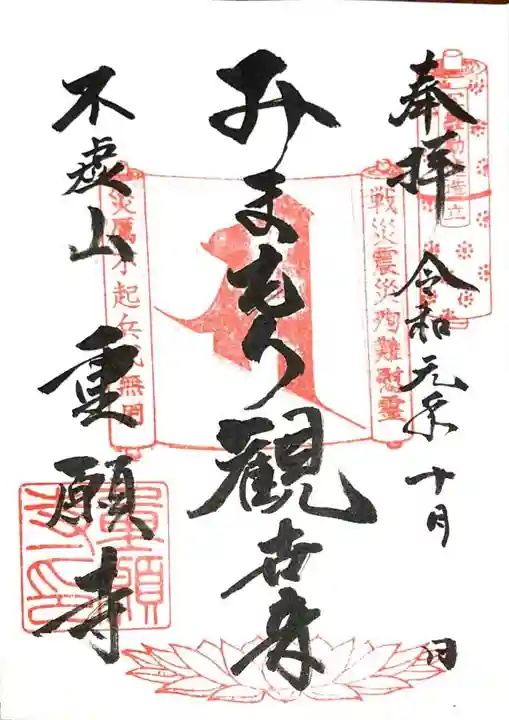 奉拝 令和元年十月 日
戦災震災殉難慰霊
みまもり観世音
災厲不起兵戈無用
不虚山 重願寺